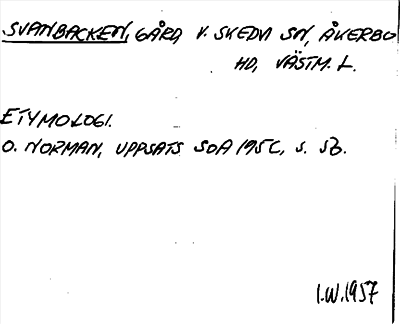 SVANBACKEN, GÅRD, V. SKEDVI SN, ÅKERBO
HD, VÄSTM. L.
ETYMOLOGI.
O. NORMAN, UPPSATS SOA 195C, S. 53.
I.W. 1957